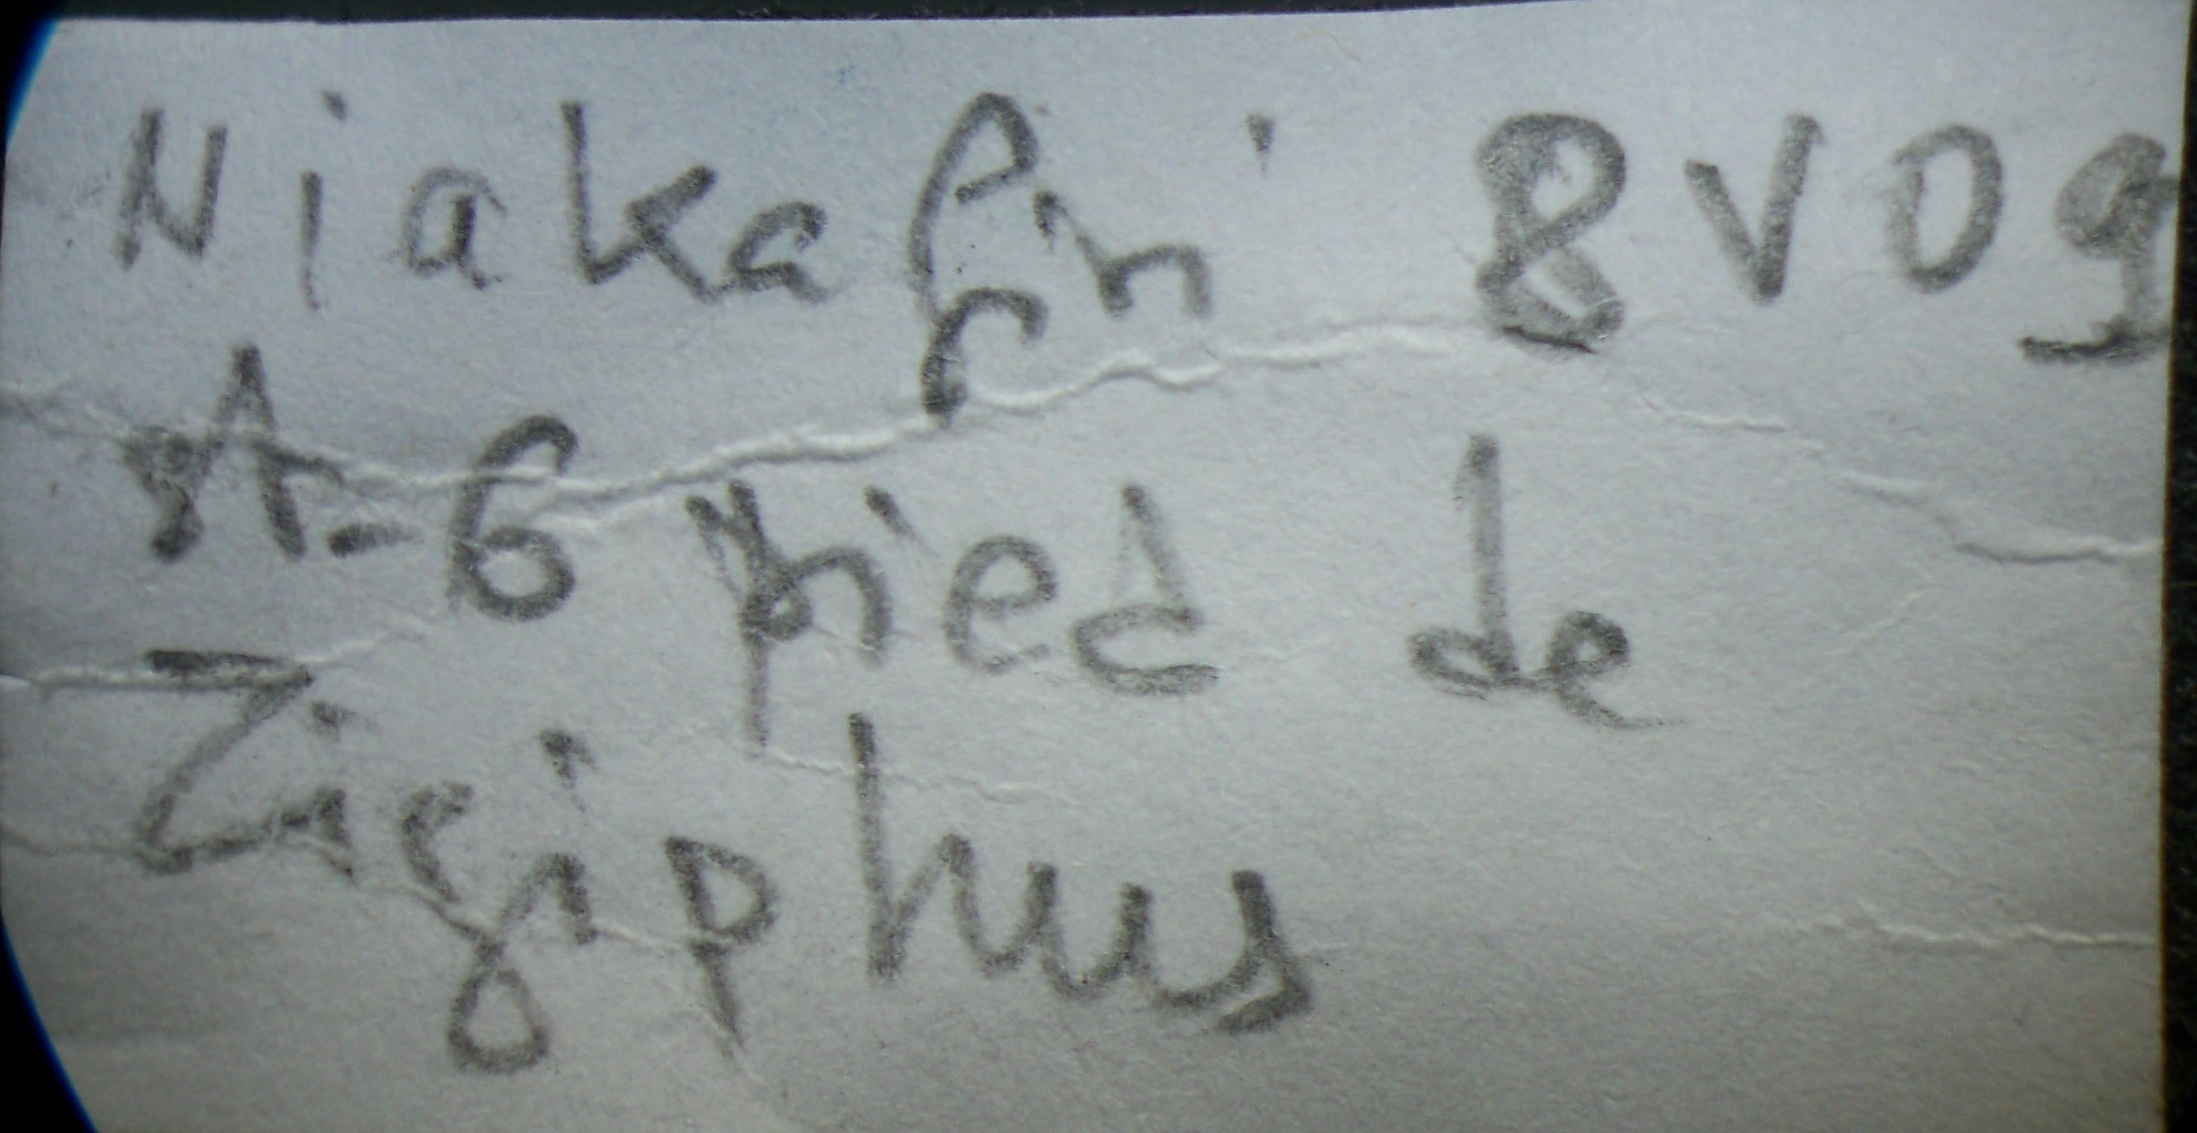 Niakafiri 8 V 09
A-6 pied de
Ziziphus